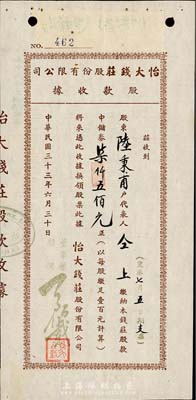 NO. 462
怡大錢莊股份有限公司
股款收據
茲收到
股東陸秉甫戶代表人 仝上 繳納本錢莊股款
中儲券柒仟五佰元正（以每股繳足壹百元計算）
將來憑此收據換領股票此據
怡大錢莊股份有限公司
中華民國三十三年六月三十日
怡大錢莊股款收據